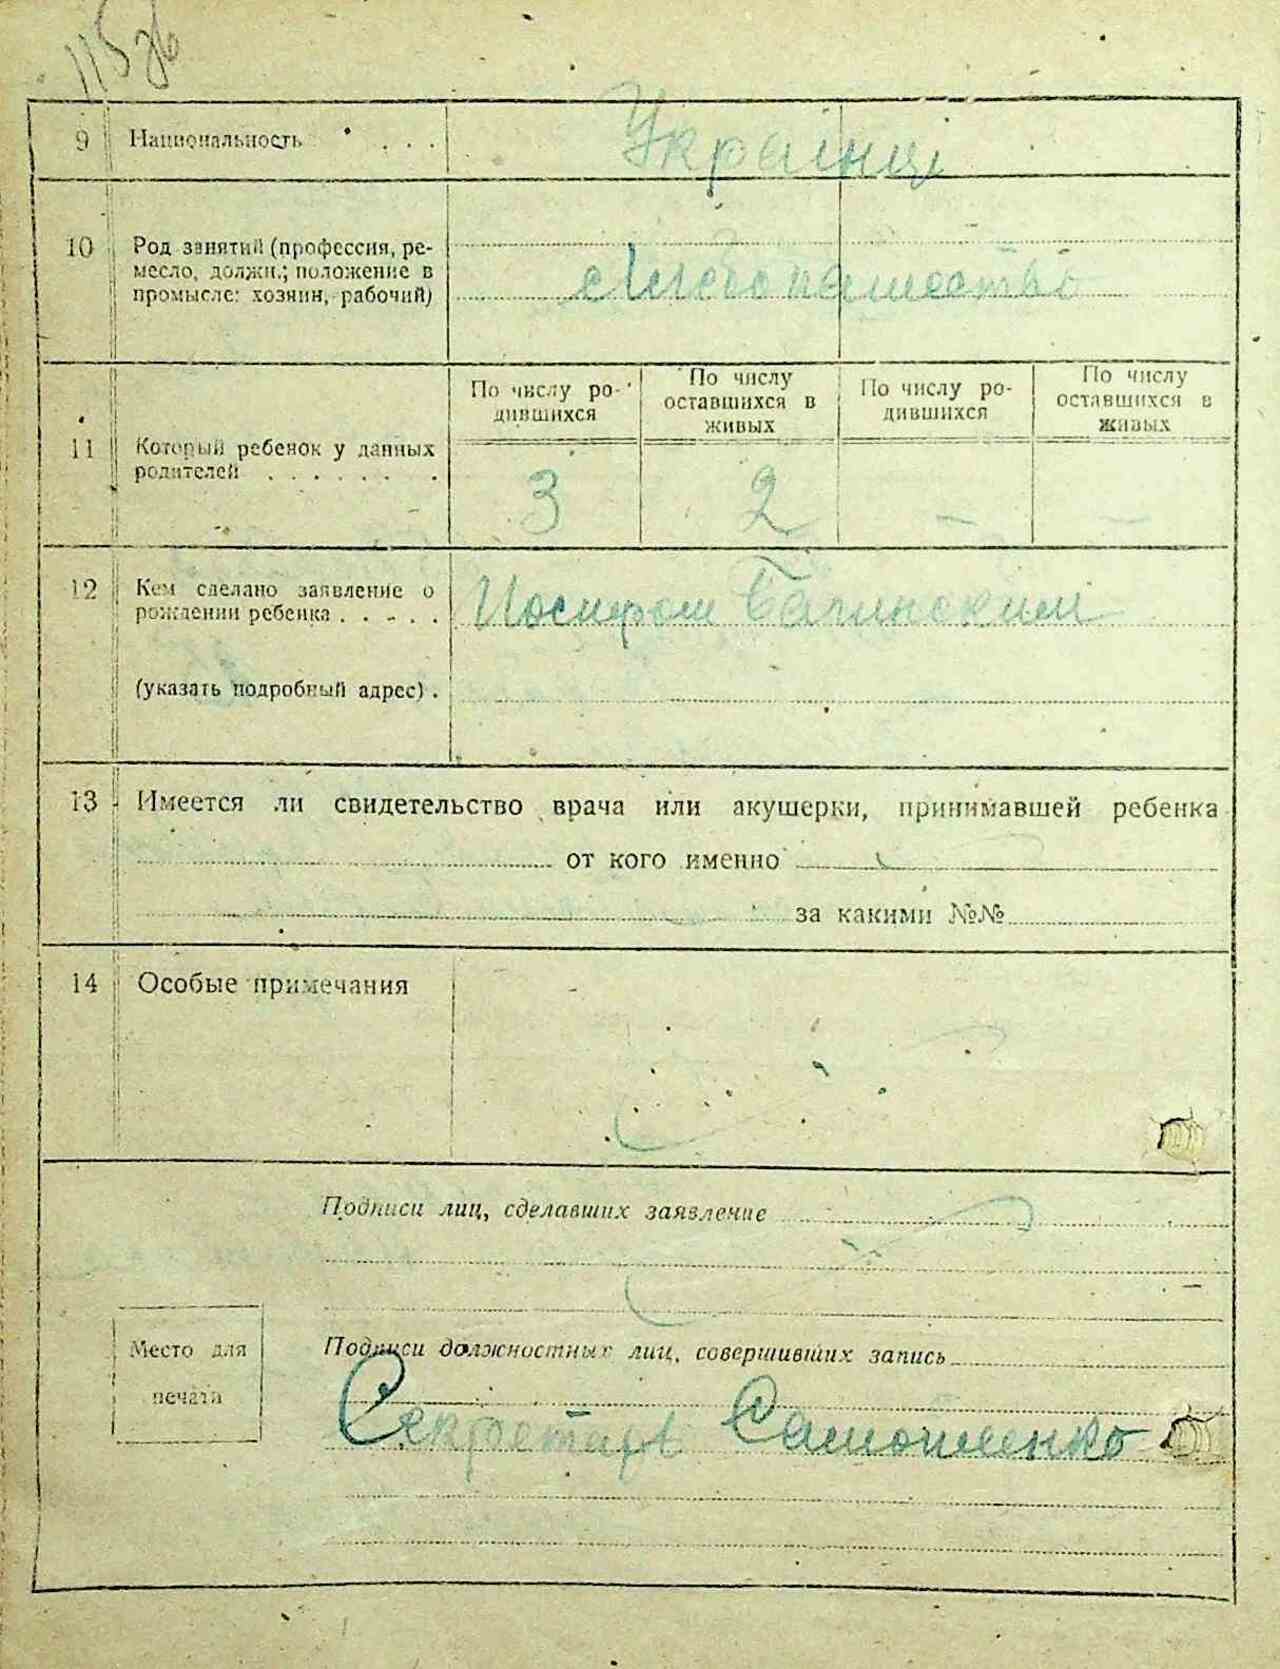 115 зв
9 Национальность . . .
Українці
10 Род занятий (профессия, ре-
месло, должн.; положение в
промысле: хозяин, рабочий)
хлібопашество
По числу ро-
дившихся
По числу
оставшихся в
живых
По числу ро-
дившихся
По числу
оставшихся в
живых
11 Который ребенок у данных
родителей . . . . . . .
3 2 — —
12 Кем сделано заявление о
рождении ребенка . . . . .
Иосифом
(указать подробный адрес) .
13 Имеется ли свидетельство врача или акушерки, принимавшей ребенка
от кого именно
за какими №№
14 Особые примечания
Подписи лиц, сделавших заявление
Место для
печати
Подписи должностных лиц, совершивших запись
Секретарь Самойленко